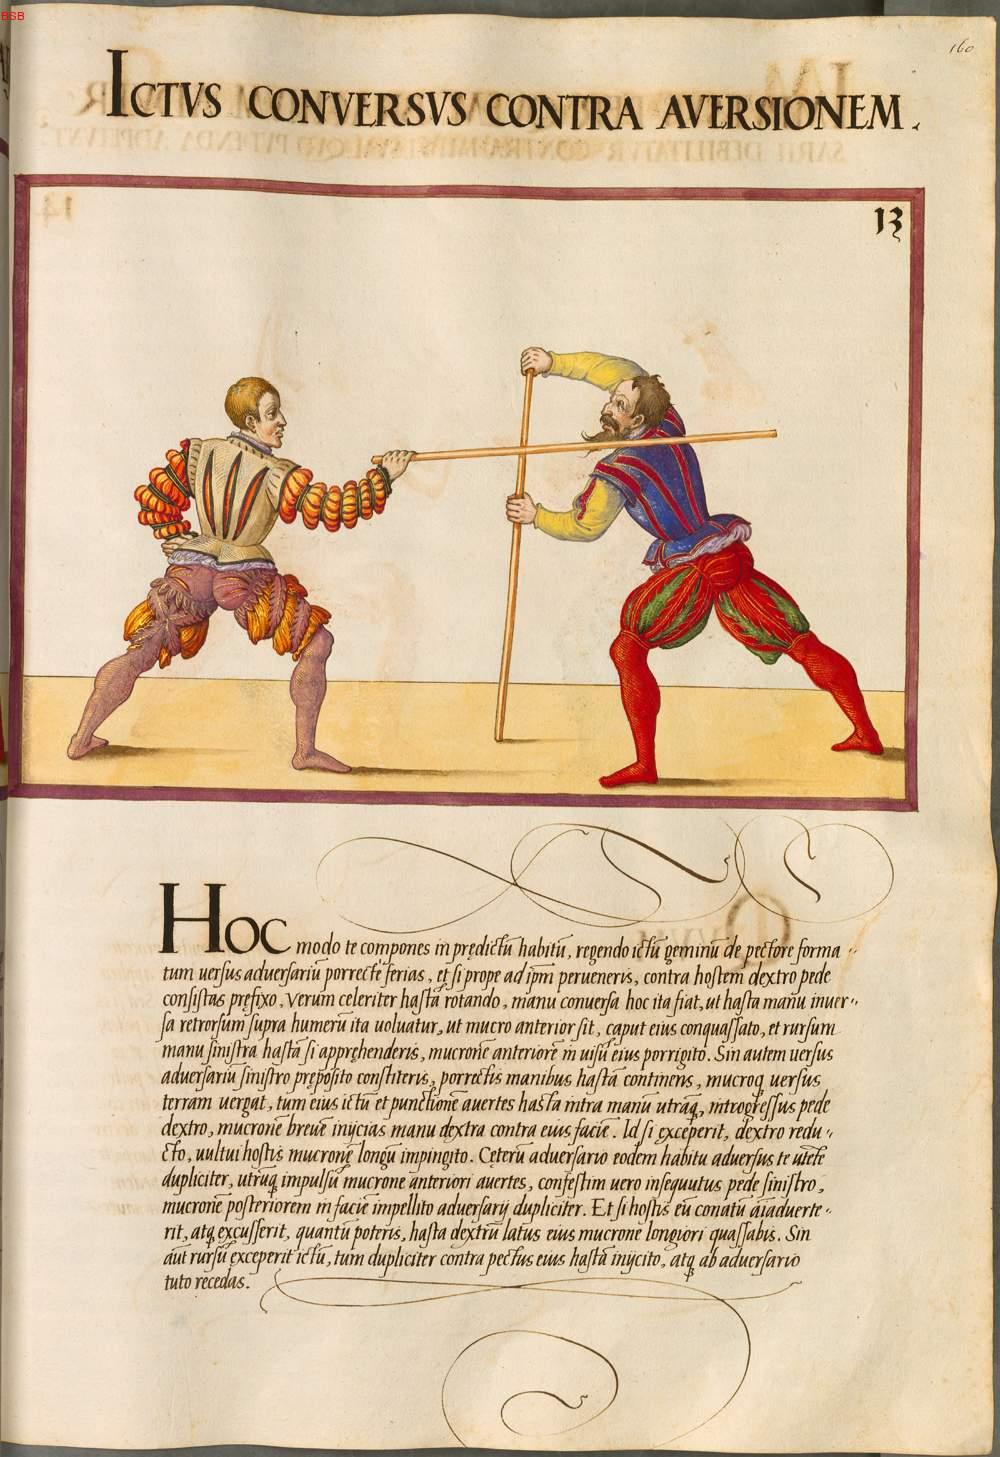 BSB
160
ICTVS CONVERSVS CONTRA AVERSIONEM.
13
Hoc modo te compones in prędictū habitū, regendo ictū geminū de pectore forma⸗
tum uersus aduersariū porrecte ferias, et si prope ad ipm perueneris, contra hostem dextro pede
consistas prefixo, Verum celeriter hastā rotando, manu conuersa hoc ita fiat, ut hasta manu inuer⸗
sa retrorsum supra humerū ita uoluatur, ut mucro anterior sit, caput eius conquassato, et rursum
manu sinistra hastā si apprehenderis, mucronē anteriorē in uisū eius porrigito. Sin autem uersus
aduersariū sinistro pręposito constiteris, porrectis manibus hastā continens, mucroq̃ uersus
terram uergat, tum eius ictū et punctionē auertes hasta intra manū utrāq̃, introgressus pede
dextro, mucronē breuē inijcias manu dextra contra eius faciē. Id si exceperit, dextro redu⸗
cto, uultui hostis mucronę longū impingito. Cęterū aduersario eodem habitu aduersus te utēte
dupliciter, utrūq̃ impulsū mucrone anteriori auertes, confestim uero insequutus pede sinistro,
mucronē posteriorem in faciē impellito aduersarij dupliciter. Et si hostis eū conatū aīaduerte⸗
rit, atq̃ excusserit, quantū poteris, hasta dextrū latus eius mucrone longiori quassabis. Sin
aūt rursū exceperit ictū, tum dupliciter contra pectus eius hastā inijcito, atq̃ ab aduersario
tuto recedas.